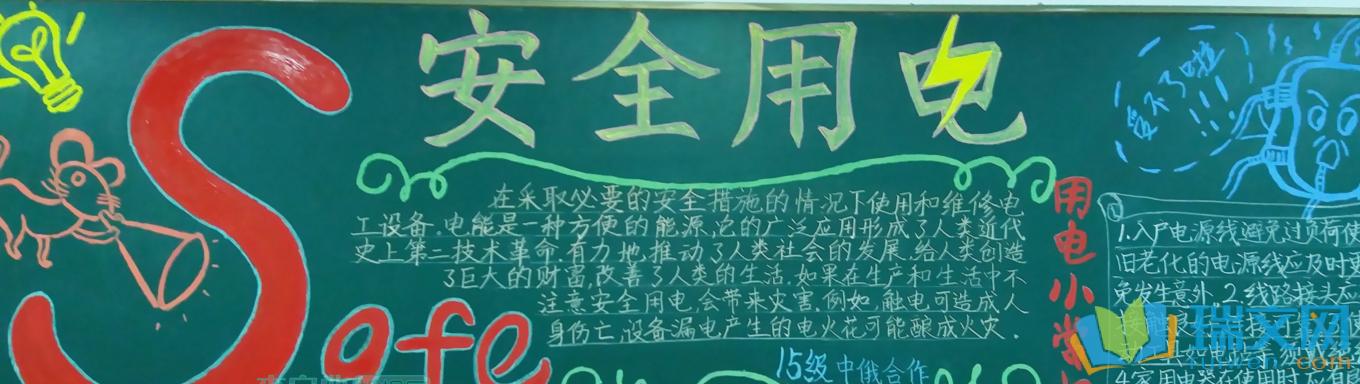 安全用电
Safe
受不了啦!!!
在采取必要的安全措施的情况下使用和维修电
工设备.电能是一种方便的能源,它的广泛应用形成了人类近代
史上第二技术革命.有力地推动了人类社会的发展,给人类创造
了巨大的财富,改善了人类的生活.如果在生产和生活中不
注意安全用电,会带来灾害.例如,触电可造成人
身伤亡,设备漏电产生的电火花可能酿成火灾.
15级中俄合作
用电小常
1.入户电源线避免过负荷使
旧老化的电源线应及时更
免发生意外.2.线路接头应
4.家用电器在使用时,应有良
瑞文网